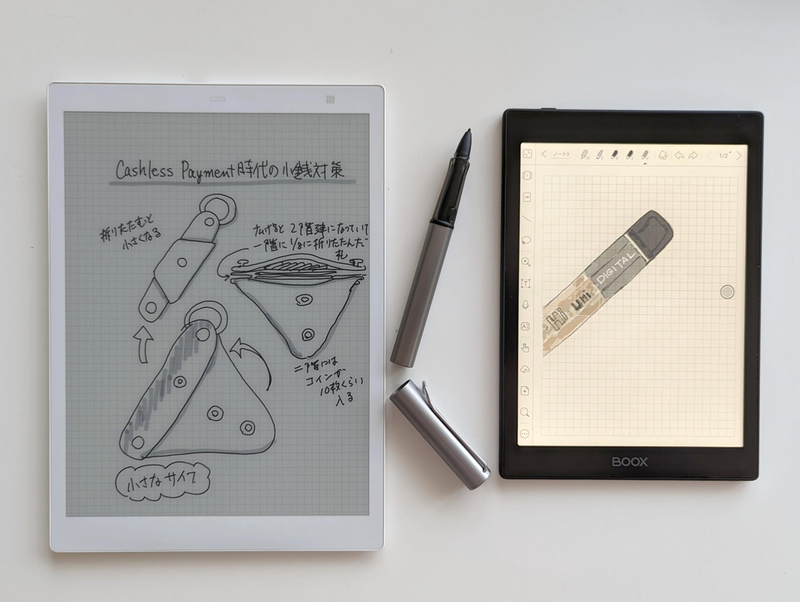 Cashless Payment時代の小銭対策
折りたたむと
小さくなる
広げると 2階建になっていて
一階に 1/8に折りたたんだ
札
二階には
コインが
10枚くらい
入る
小さなサイフ
ノート5
1/2
DIGITAL
Hi Uni
BOOX